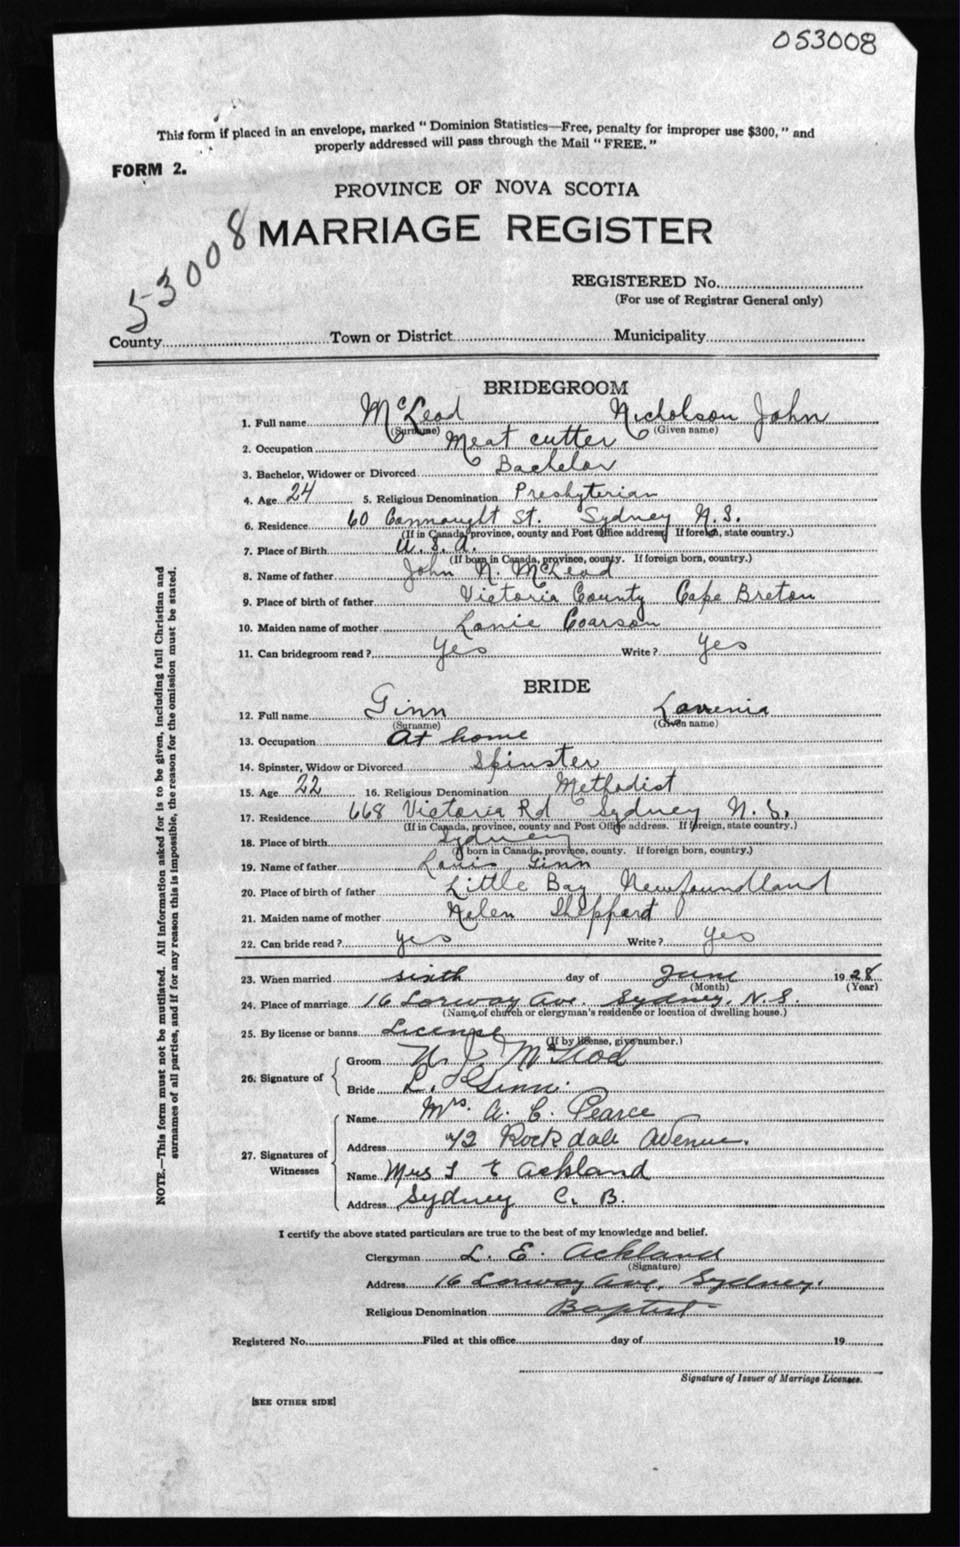 053008
This form if placed in an envelope, marked "Dominion Statistics—Free, penalty for improper use $300," and
properly addressed will pass through the Mail "FREE."
FORM 2.
PROVINCE OF NOVA SCOTIA
MARRIAGE REGISTER
53008
REGISTERED No.
(For use of Registrar General only)
County Town or District Municipality
BRIDEGROOM
1. Full name McLeod Nicholson John
(Surname) (Given name)
2. Occupation Meat cutter
3. Bachelor, Widower or Divorced Bachelor
4. Age 24 5. Religious Denomination Presbyterian
6. Residence 60 Connaught St. Sydney N.S.
(If in Canada, province, county and Post Office address. If foreign, state country.)
7. Place of Birth U.S.A.
(If born in Canada, province, county. If foreign born, country.)
8. Name of father John N. McLeod
9. Place of birth of father Victoria County Cape Breton
10. Maiden name of mother Lanie Coarson
11. Can bridegroom read? Yes Write? Yes
BRIDE
12. Full name Ginn Lavenia
(Surname) (Given name)
13. Occupation At home
14. Spinster, Widow or Divorced Spinster
15. Age 22 16. Religious Denomination Methodist
17. Residence 668 Victoria Rd Sydney N.S.
(If in Canada, province, county and Post Office address. If foreign, state country.)
18. Place of birth Sydney
(If born in Canada, province, county. If foreign born, country.)
19. Name of father Louis Ginn
20. Place of birth of father Little Bay Newfoundland
21. Maiden name of mother Helen Sheppard
22. Can bride read? Yes Write? Yes
23. When married sixth day of June 1928
(Month) (Year)
24. Place of marriage 16 Lorway Ave. Sydney, N.S.
(Name of church or clergyman's residence or location of dwelling house.)
25. By license or banns License
(If by license, give number.)
26. Signature of Groom N. J. McLeod
Bride L. Ginn.
27. Signatures of Witnesses Name Mrs. A. C. Pearce
Address 42 Rockdale Avenue.
Name Mrs L E Ackland
Address Sydney C. B.
I certify the above stated particulars are true to the best of my knowledge and belief.
Clergyman L. E. Ackland
(Signature)
Address 16 Lorway Ave, Sydney.
Religious Denomination Baptist
Registered No. Filed at this office day of 19
Signature of Issuer of Marriage Licenses.
[SEE OTHER SIDE]
NOTE.—This form must not be mutilated. All information asked for is to be given, including full Christian and
surnames of all parties, and if for any reason this is impossible, the reason for the omission must be stated.